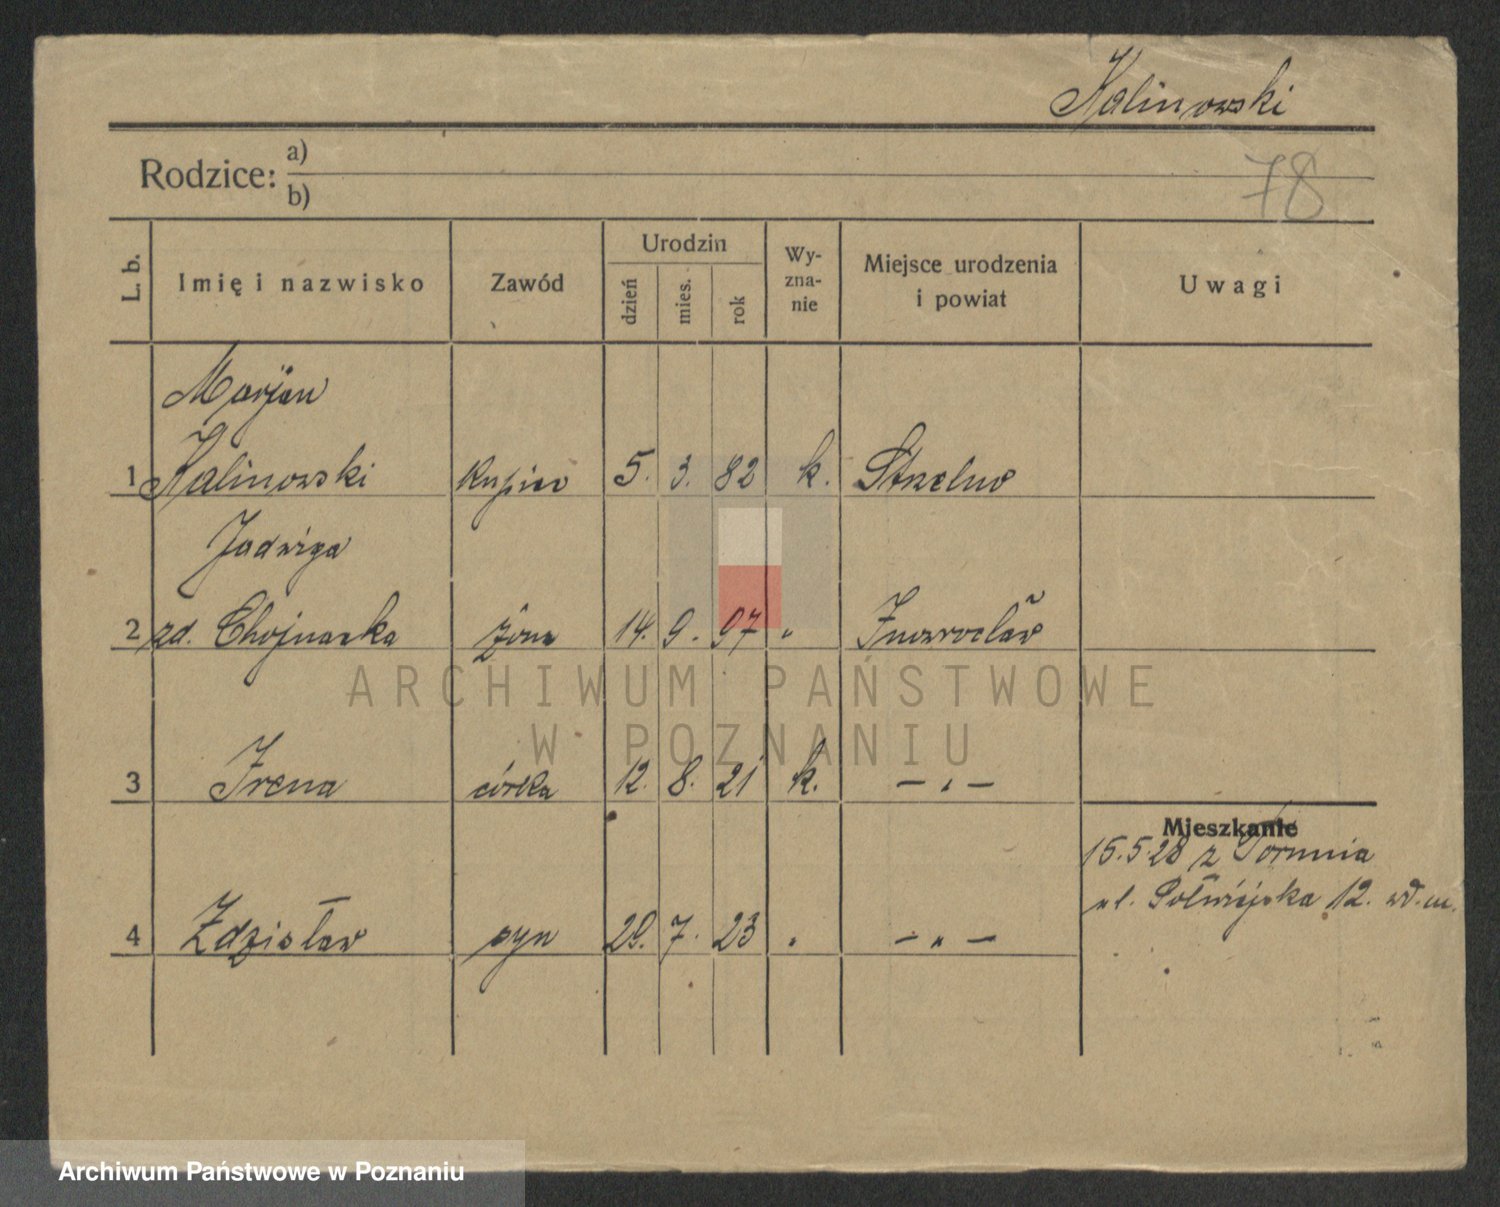 Kalinowski
Rodzice: a)
b)
78
L. b. Imię i nazwisko Zawód Urodzin dzień mies. rok Wy-zna-nie Miejsce urodzenia i powiat Uwagi
Marjan
1 Kalinowski kupiec 5. 3. 82 k. Strzelno
Jadwiga
2 zd. Chojnacka żona 14. 9. 97 " Inowrocław
ARCHIWUM PAŃSTWOWE
W POZNANIU
3 Irena córka 12. 8. 21 k. — " —
Mieszkanie
15.5.28 z Torunia
ul. Półwiejska 12.
4 Zdzisław syn 29. 7. 23 " — " —
Archiwum Państwowe w Poznaniu